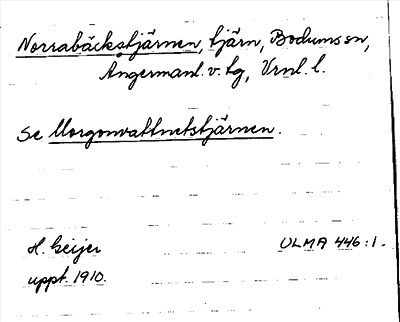 Norrabäckstjärnen, tjärn, Bodums sn,
Ångermanl. v. tg, Vrnl. l.
Se Morgonvattnetstjärnen.
H. Geijer
uppt. 1910.
ULMA 446:1.